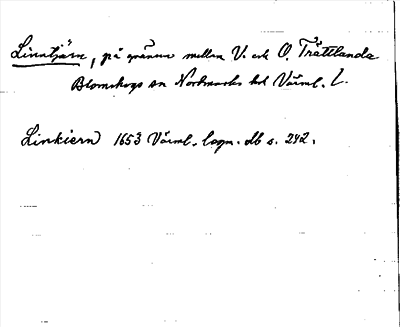 Linntjärn, på gränsen mellan V. och Ö. Trättlanda
Blomskogs sn Nordmarks hd Värml. L.
Linkiern 1653 Värml. lagm. db s. 242.